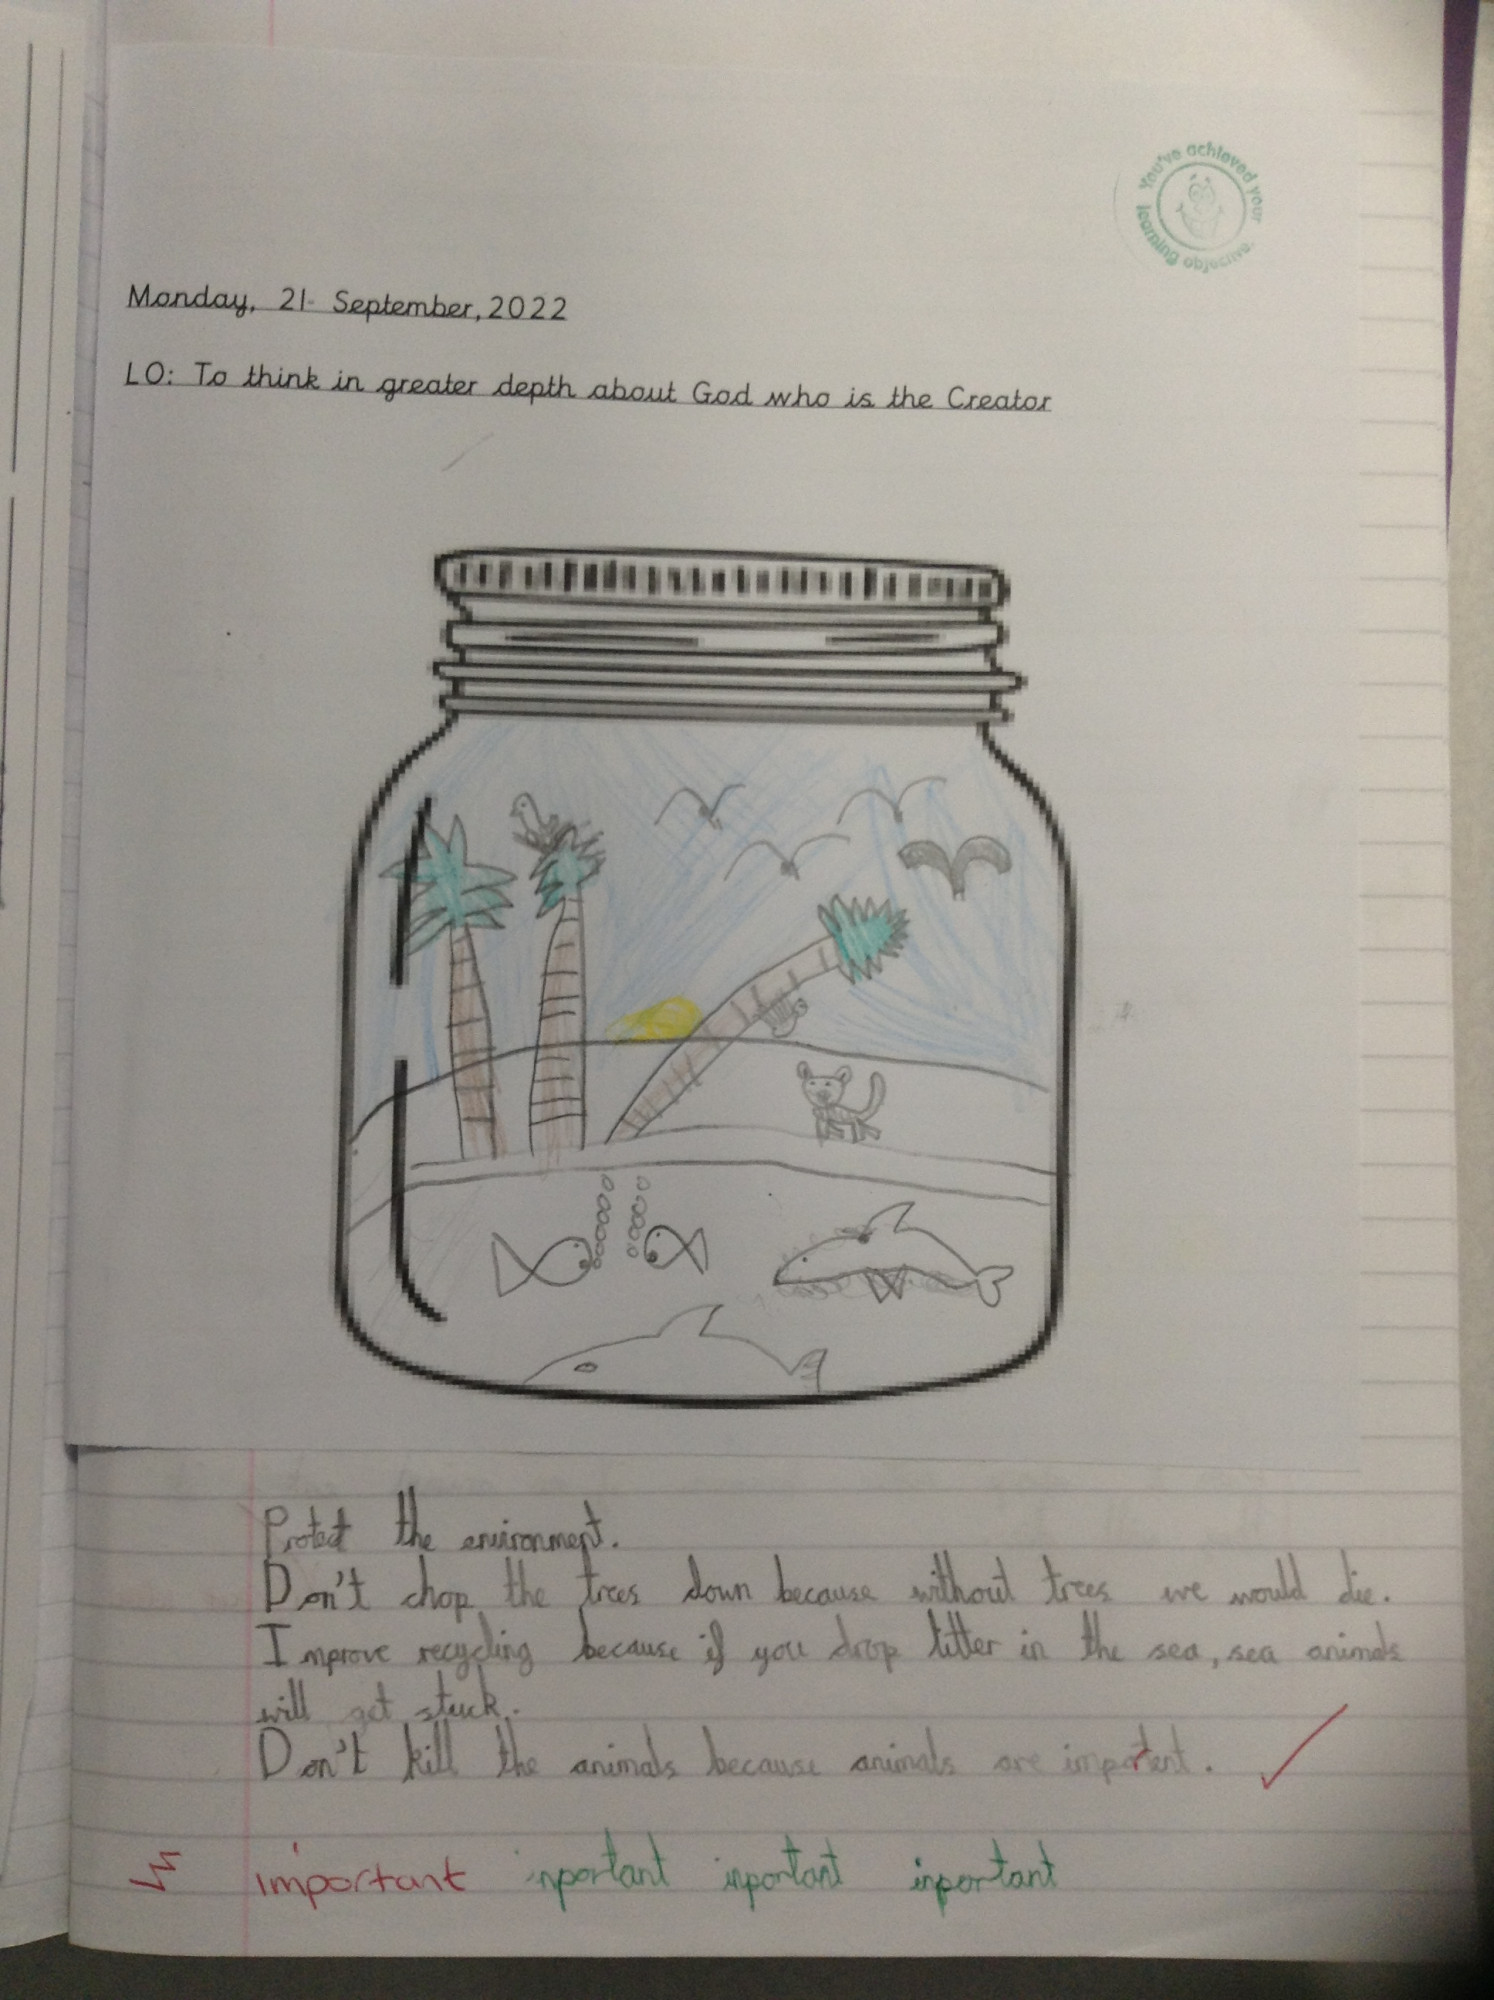 You've achieved your learning objective.
Monday, 21 September, 2022
LO: To think in greater depth about God who is the Creator
Protect the environment.
Don't chop the trees down because without trees we would die.
Improve recycling because if you drop litter in the sea, sea animals
will get stuck.
Don't kill the animals because animals are importent.
important inportant inportant inportant